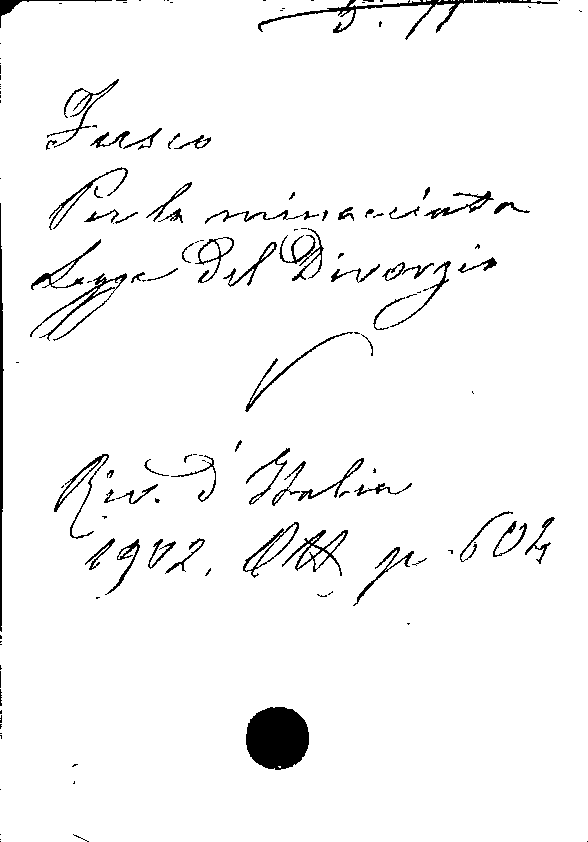 5. 77
Fusco
Per la minacciata
Legge del Divorzio
V
Riv. d'Italia
1902. Ott p. 604